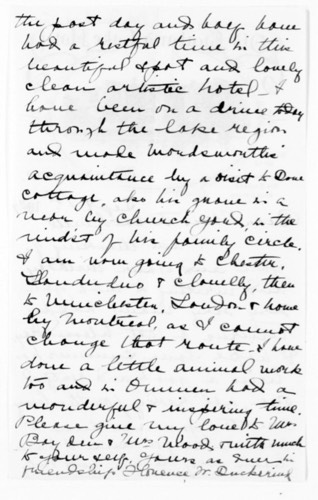 the past day and half have
had a restful time in this
beautiful spot and lovely
clean artistic hotel - I
have been on a drive today
through the lake region
and made Wordsworth's
acquaintance by a visit to Dove
Cottage, also his grave in a
near by church yard, in the
midst of his family circle.
I am now going to Chester,
Llandudno & Clovelly, then
to Winchester, London & home
by Montreal, as I cannot
change that route - I have
done a little animal work
too and in Dunnen had a
wonderful & inspiring time.
Please give my love to Mrs
Boy & Mrs Wood & with much
to yourself. Yours as ever in
friendship Florence W. Duckering